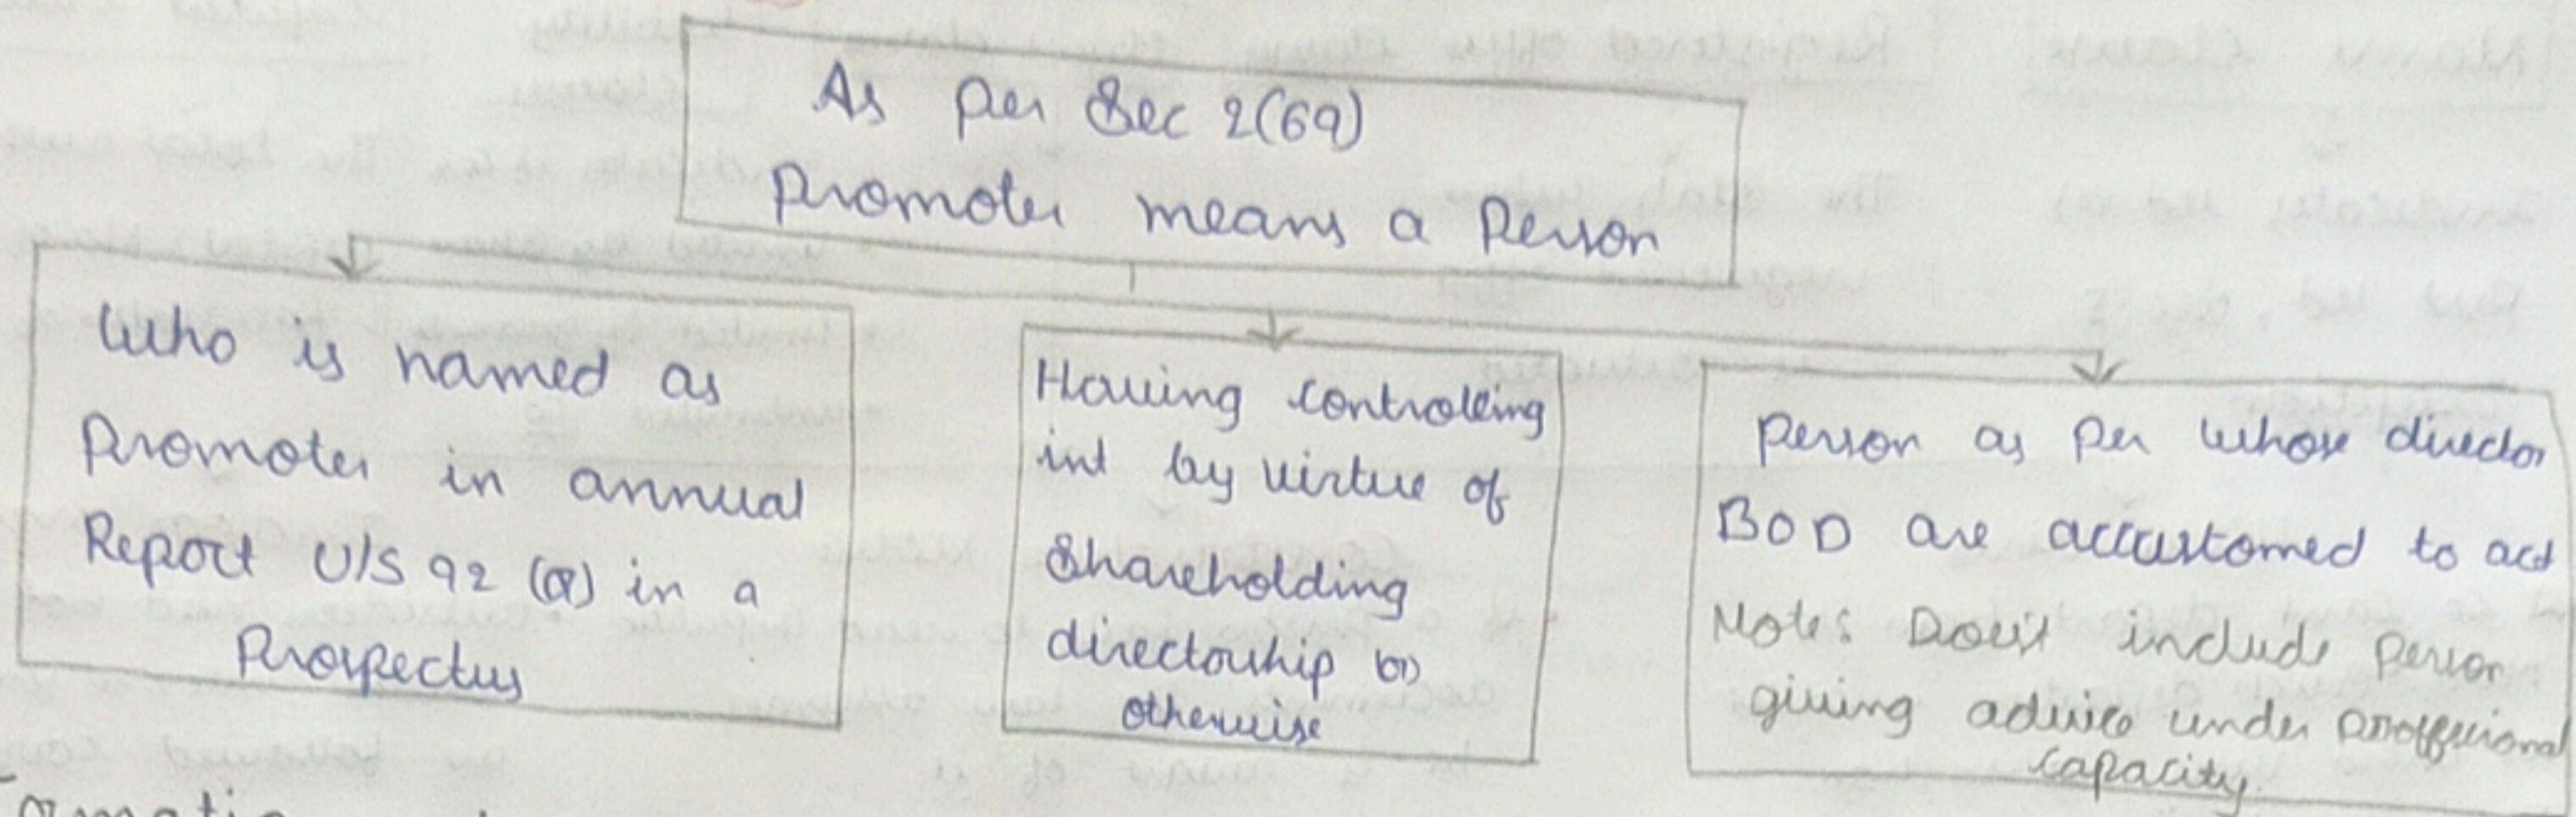 As per Sec 2(69)
Promoter means a Person
Who is named as
Promoter in annual
Report U/S 92 (or) in a
Prospectus
Having controlling
int by virtue of
Shareholding
directorship (or)
otherwise
person as per whose director
BOD are accustomed to act
Note: Does't include person
giving advice under proffessional
capacity.